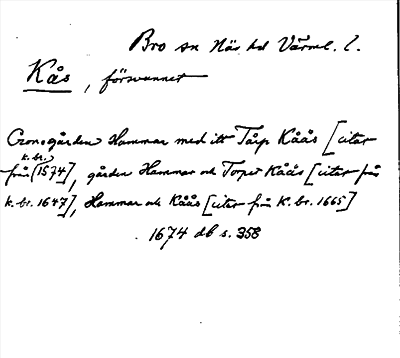 Bro sn Näs hd Värml. l.
Kås, försvunnet
Cronogården Hammar med itt Tårp Kåås [citat
från k. br. (1574], gården Hammar och Torpet Kåås [citat från
k. br. 1647], Hammar och Kåås [citat från K. br. 1665]
1674 db s. 358